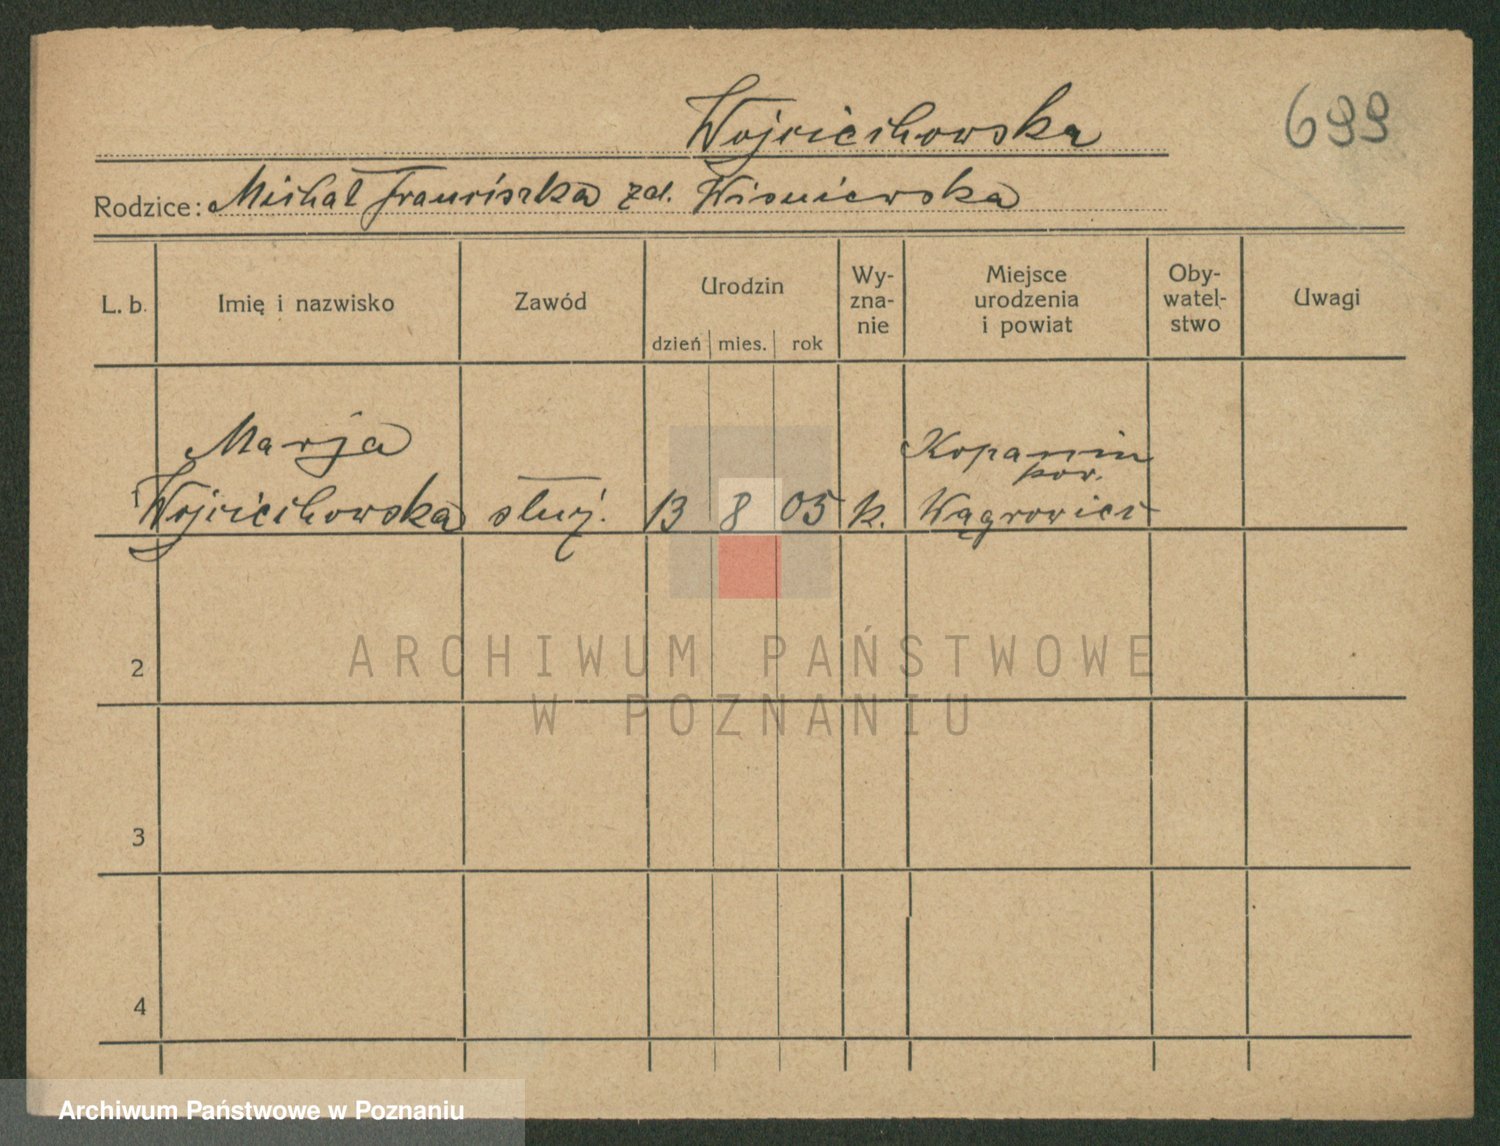 Wojciechowska
699
Rodzice: Michał Franciszka zd. Wiśniewska
L. b.
Imię i nazwisko
Zawód
Urodzin
dzień
mies.
rok
Wy-
zna-
nie
Miejsce
urodzenia
i powiat
Oby-
watel-
stwo
Uwagi
1
Marja
Wojciechowska
służ.
13
8
05
k.
Kopanin
pow.
Wągrowiec
2
3
4
ARCHIWUM PAŃSTWOWE
W POZNANIU
Archiwum Państwowe w Poznaniu